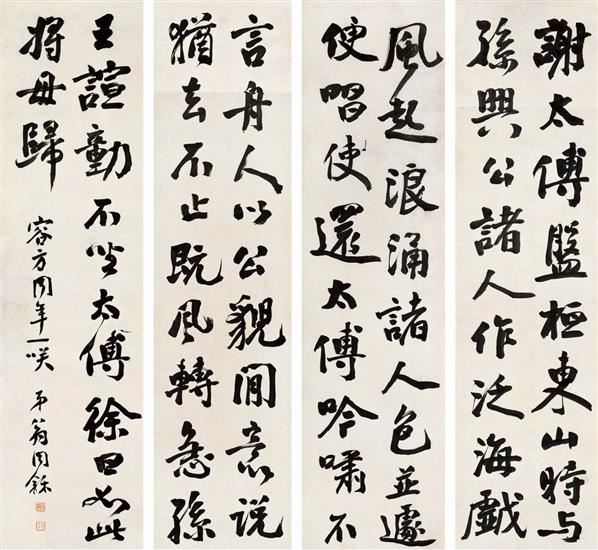 謝太傅盤桓東山時与
孫興公諸人作泛海戲
風起浪涌諸人色並遽
便唱使還太傅吟嘯不
言舟人以公貌閒意説
猶去不止既風轉急孫
王諠動不坐太傅徐曰如此
將毋歸
容方同年一咲 弟翁同龢